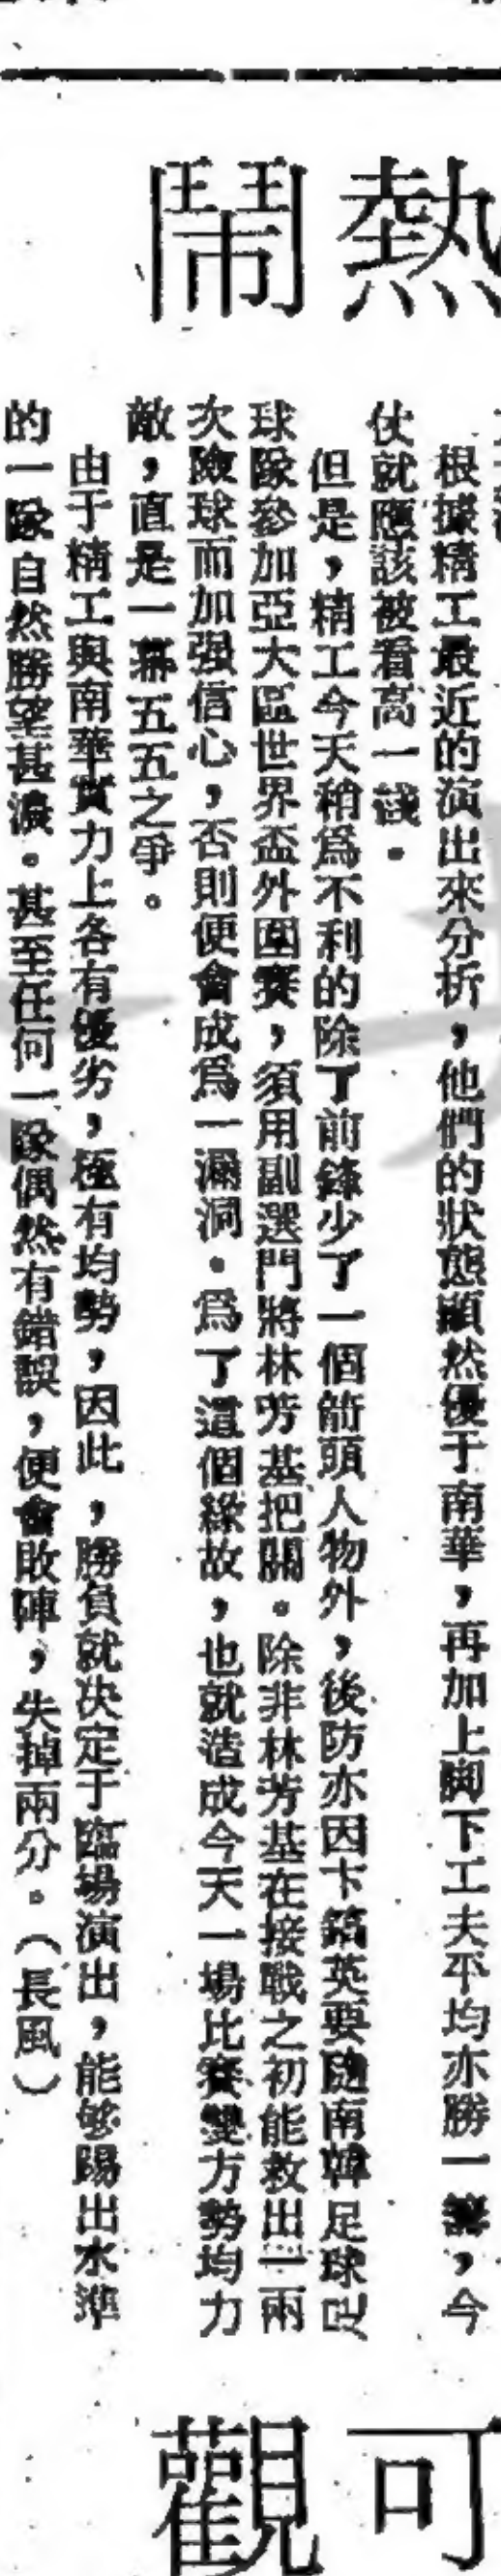 熱鬧
可觀
根據精工最近的演出來分析，他們的狀態顯然優于南華，再加上脚下工夫平均亦勝一籌，今
伏就應該被看高一綫。
但是，精工今天稍爲不利的除了前鋒少了一個箭頭人物外，後防亦因卞鎬英要隨南韓足球
球隊參加亞大區世界盃外圍賽，須用副選門將林芳基把關。除非林芳基在接戰之初能救出一兩
次險球而加强信心，否則便會成爲一漏洞。爲了這個緣故，也就造成今天一場比賽雙方勢均力
敵，直是一幕五五之爭。
由于精工與南華實力上各有優劣，極有均勢，因此，勝負就決定于臨場演出，能够踢出水準
的一隊自然勝望甚濃。甚至任何一隊偶然有錯誤，便會敗陣，失掉兩分。（長風）